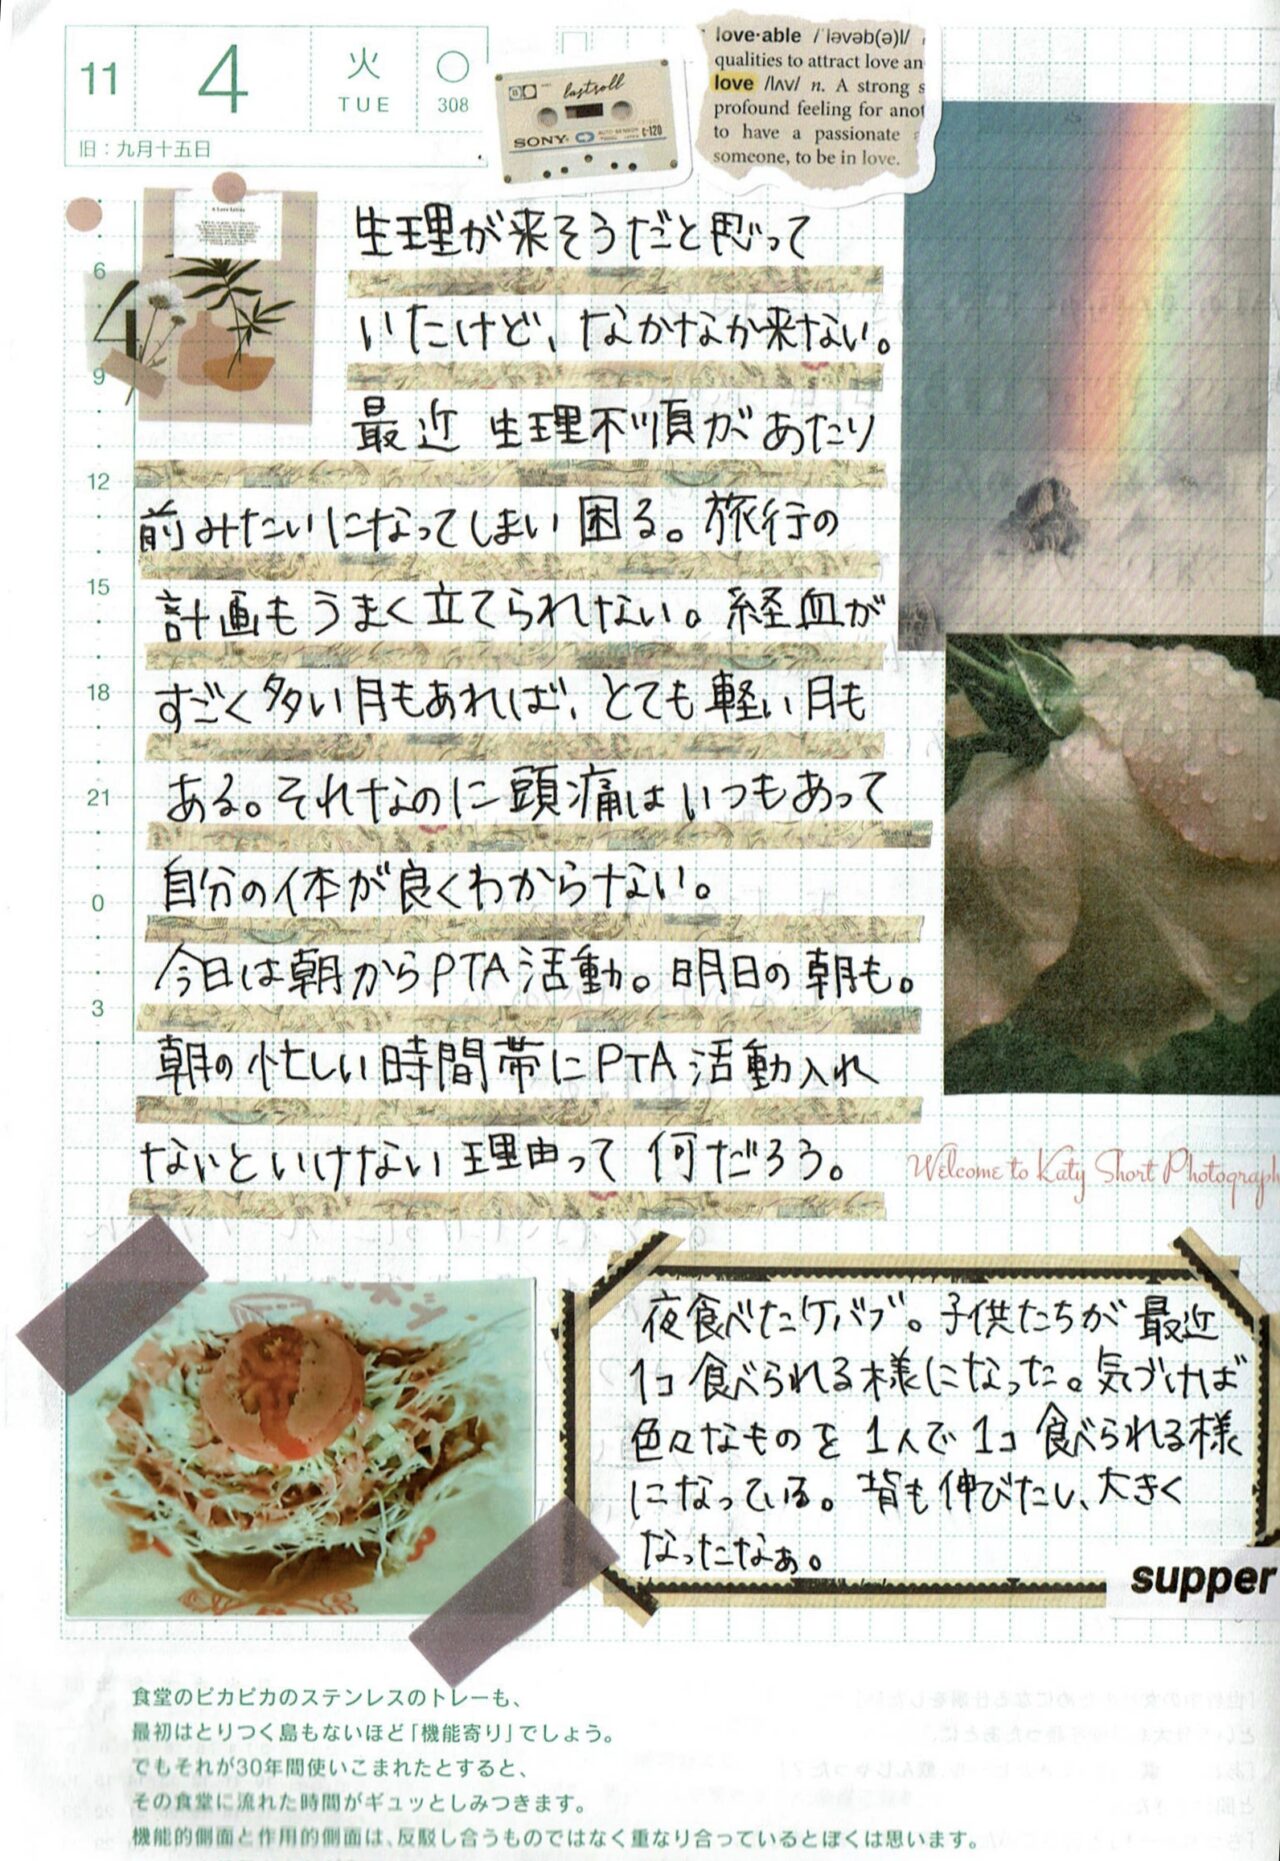 11
4
火
TUE
308
旧：九月十五日
lastroll
SONY
C-120
love·able /ˈləvəb(ə)l/
qualities to attract love an
love /lʌv/ n. A strong s
profound feeling for anot
to have a passionate
someone, to be in love.
6
4
9
12
15
18
21
0
3
生理が来そうだと思って
いたけど、なかなか来ない。
最近 生理不順があたり
前みたいになってしまい困る。旅行の
計画もうまく立てられない。経血が
すごく多い月もあれば、とても軽い月も
ある。それなのに頭痛はいつもあって
自分の体が良くわからない。
今日は朝からPTA活動。明日の朝も。
朝の忙しい時間帯にPTA活動入れ
ないといけない理由って何だろう。
Welcome to Katy Short Photograph
夜食べたケバブ。子供たちが最近
1コ食べられる様になった。気づけば
色々なものを1人で1コ食べられる様
になっている。背も伸びたし、大きく
なったなぁ。
supper
食堂のピカピカのステンレスのトレーも、
最初はとりつく島もないほど「機能寄り」でしょう。
でもそれが30年間使いこまれたとすると、
その食堂に流れた時間がギュッとしみつきます。
機能的側面と作用的側面は、反駁し合うものではなく重なり合っているとぼくは思います。